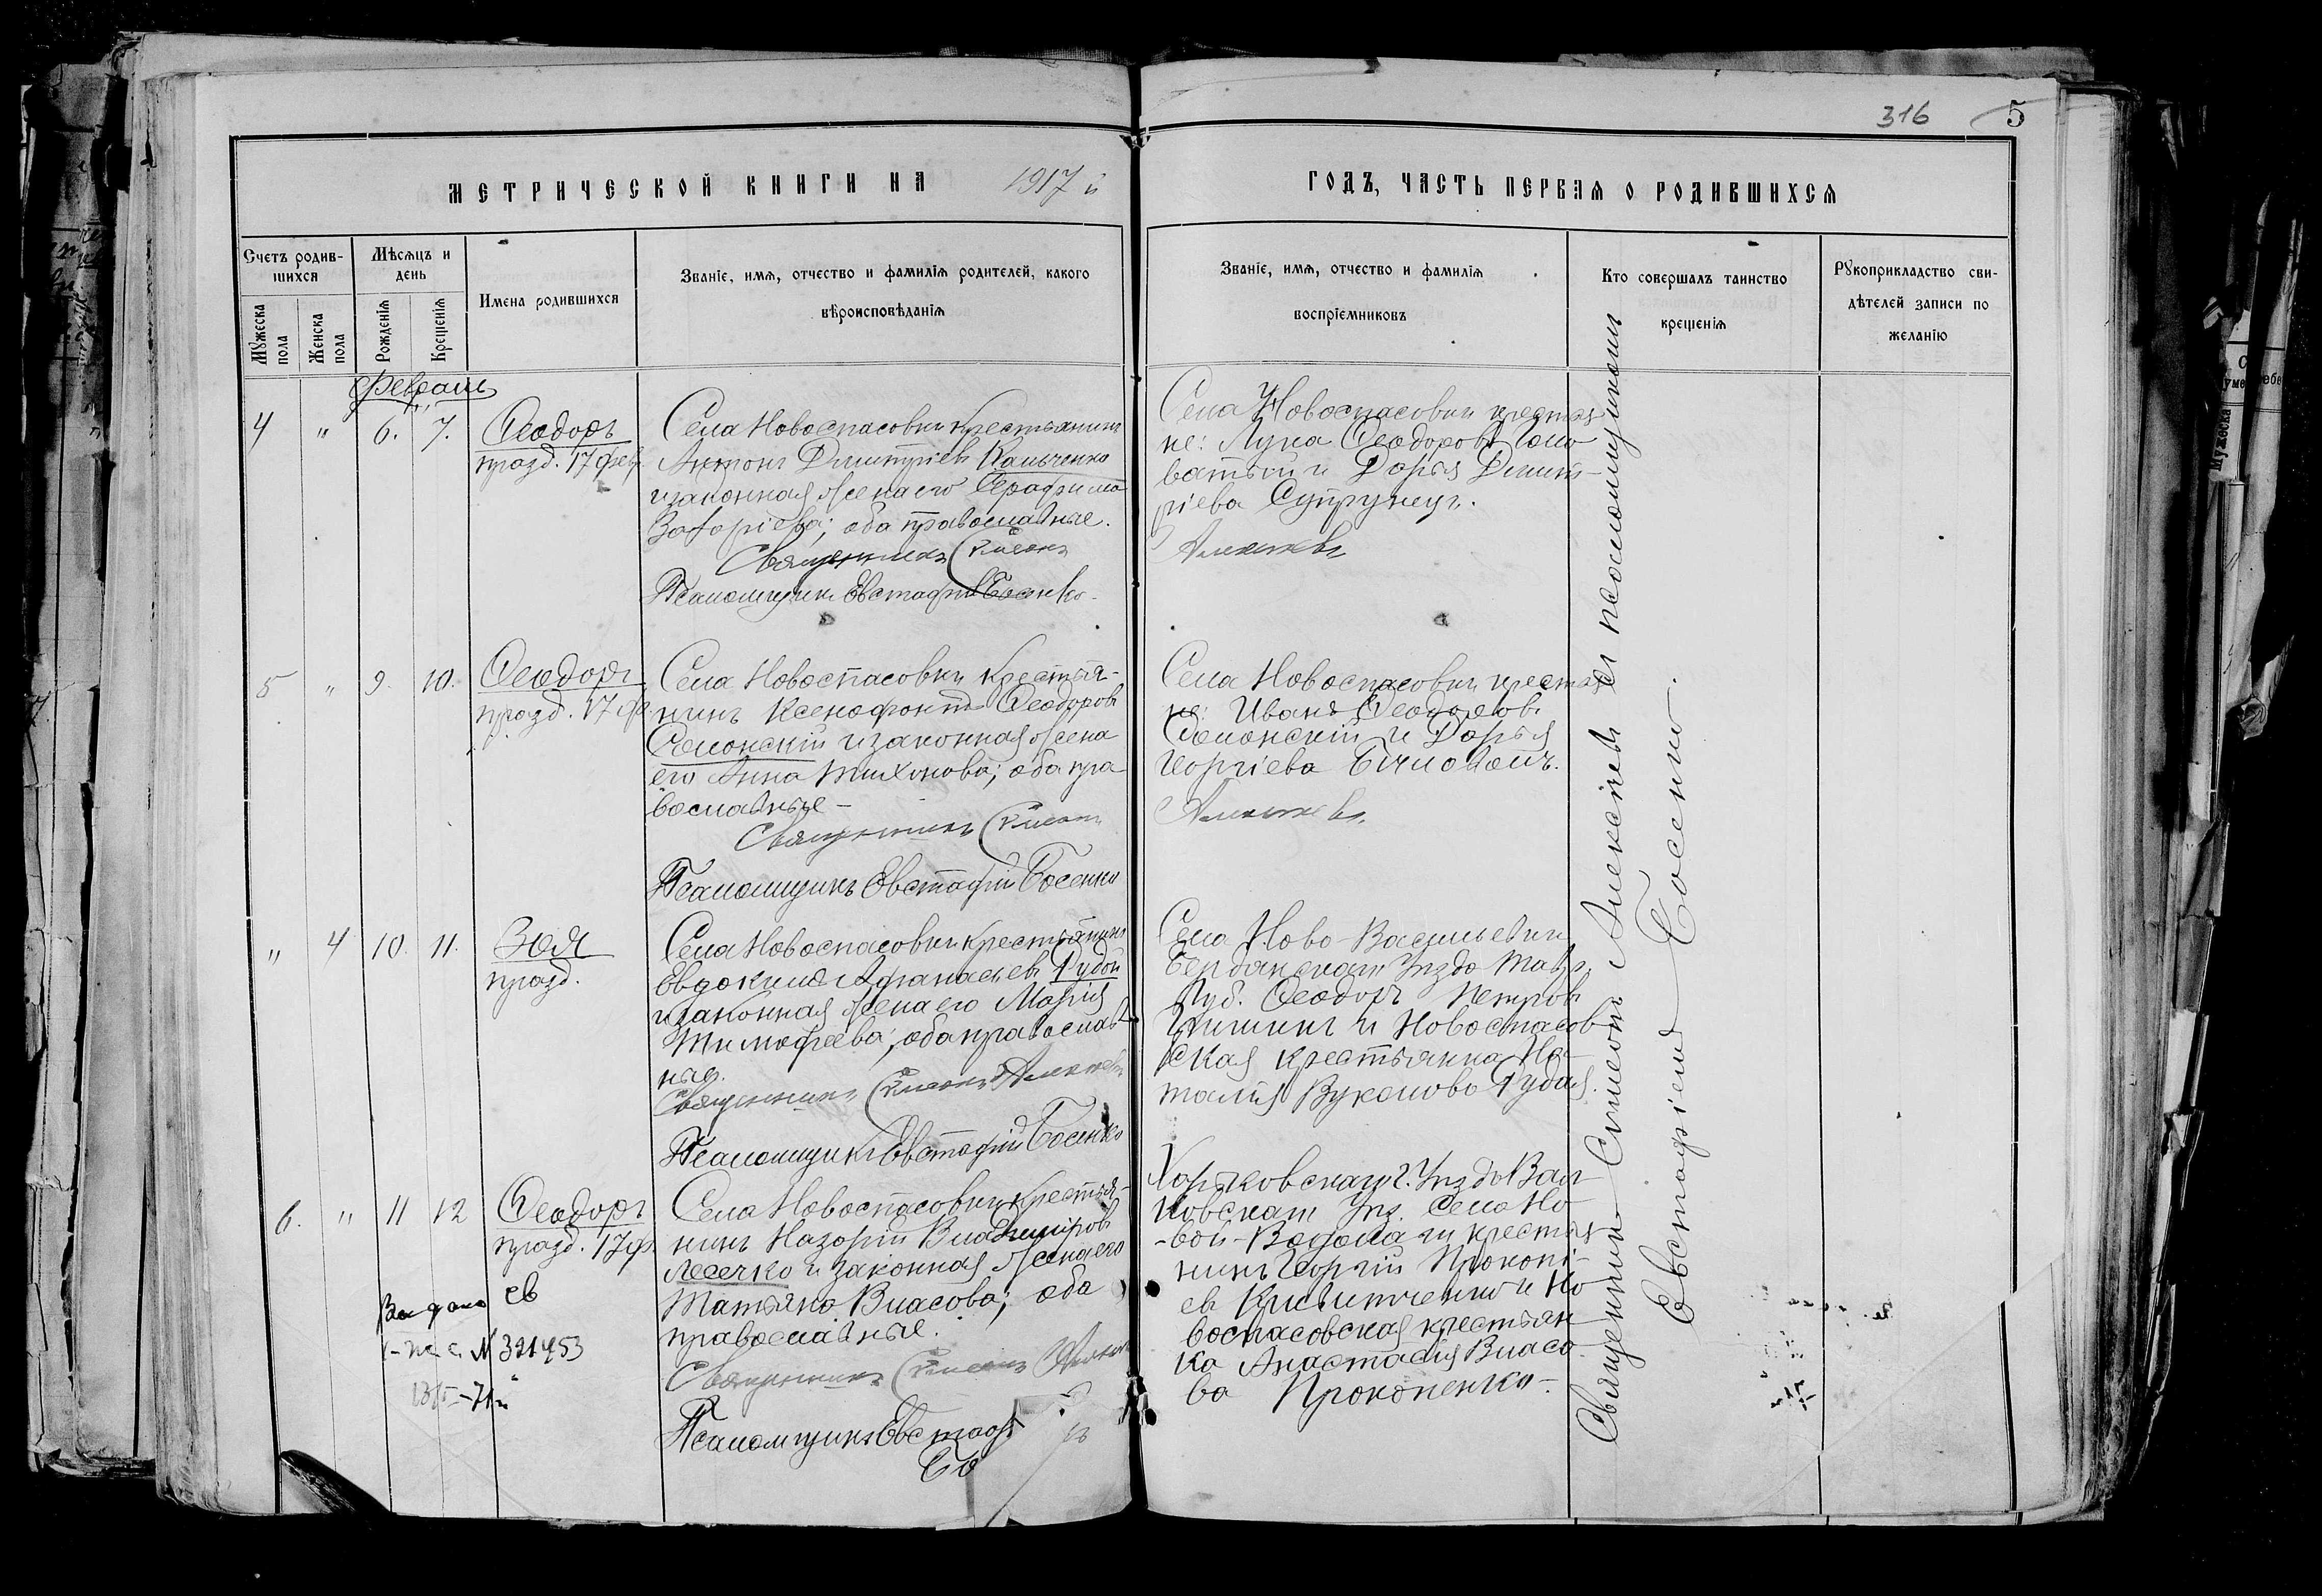 316 5
МЕТРИЧЕСКОЙ КНИГИ НА 1917 й ГОДЪ, ЧАСТЬ ПЕРВАЯ О РОДИВШИХСЯ
Счетъ родив-
шихся
Мужеска пола
Женска пола
Мѣсяцъ и
день
Рожденія
Крещенія
Имена родившихся
Званіе, имя, отчество и фамилія родителей, какого
вѣроисповѣданія
Званіе, имя, отчество и фамилія
воспріемниковъ
Кто совершалъ таинство
крещенія
Рукоприкладство сви-
дѣтелей записи по
желанію
Февраль
4 " 6. 7.
Ѳеодоръ
празд. 17 фев.
Села Новоспасовки крестьянинъ
Антонъ Димитріевъ Кальченко
и законная жена его Серафима
Захаріева; оба православные.
Священникъ Симеонъ
Псаломщикъ Евстафій Босенко.
Села Новоспасовки крестья-
не: Лука Ѳеодоровъ
ватый и Дарья Димит-
ріева Супрунец.
Алексѣевъ
5 " 9. 10.
Ѳеодоръ
празд. 17 ф.
Села Новоспасовки крестья-
нинъ Ксенофонтъ Ѳеодоровъ
и законная жена
его Анна Тихонова; оба пра-
вославные
Священникъ Симеонъ
Псаломщикъ Евстафій Босенко
Села Новоспасовки крестья-
не: Иванъ Ѳеодоровъ
и Дарья
Георгіева
Алексѣевъ
" 4 10. 11.
Зоя
празд.
Села Новоспасовки крестьянинъ
Евдокимъ Афанасьевъ Рудой
и законная жена его Марія
Тимофеева; оба православ-
ные.
Священникъ Симеонъ Алексѣевъ
Псаломщикъ Евстафій Босенко
Села Ново-Васильевки
Бердянскаго Уѣзда Тавр.
Губ. Ѳеодоръ Петровъ
и Новоспасов-
ская крестьянка На-
талія Вуколова Рудая.
6. " 11 12
Ѳеодоръ
празд. 17 ф.
Села Новоспасовки крестья-
нинъ Назарій Владиміровъ
Лесечко и законная жена его
Татьяна Власова; оба
православные.
Священникъ Симеонъ
Псаломщикъ Евстаф
Бо
Харьковской г. Уѣзда Вал-
ковскаго Уѣз. Села Но-
вой-Водолаги крестья-
нинъ Георгій Прокопі-
евъ и Но-
воспасовская крестьян-
ка Анастасія Власо-
ва Прокопенко.
ев
№ 321453
Священникъ Симеонъ Алексѣевъ съ псаломщикомъ
Евстафіемъ Босенко.